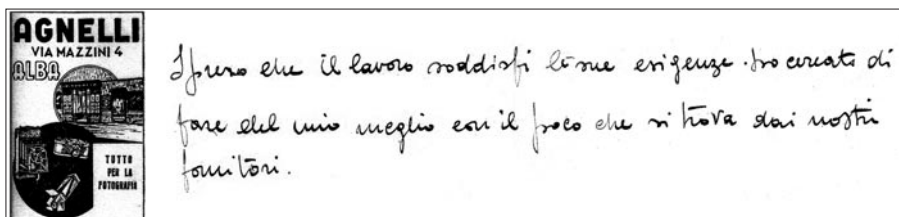 AGNELLI
VIA MAZZINI 4
ALBA
TUTTO
PER LA
FOTOGRAFIA
Spero che il lavoro soddisfi le sue esigenze. Ho cercato di
fare del mio meglio con il poco che si trova dai nostri
fornitori.